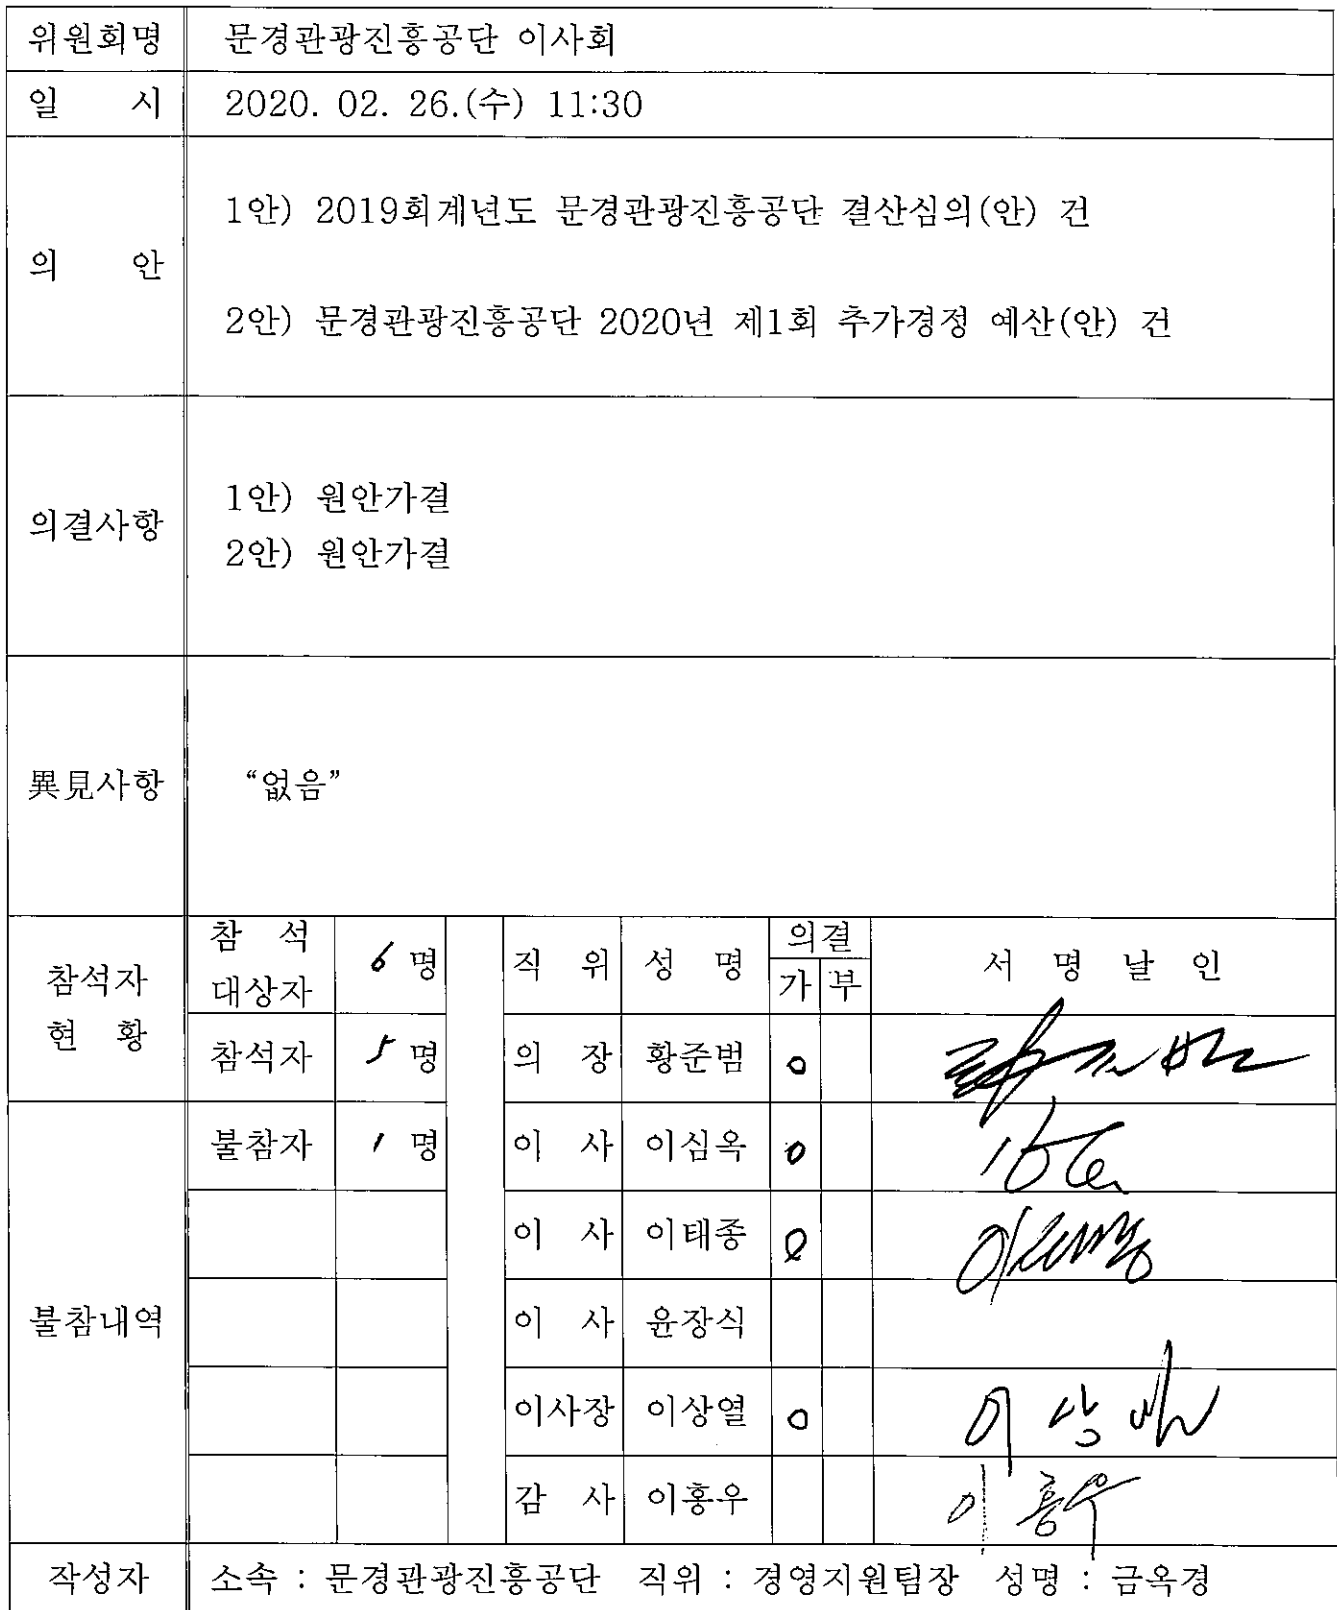 위원회명 문경관광진흥공단 이사회
일 시 2020. 02. 26.(수) 11:30
의 안
1안) 2019회계년도 문경관광진흥공단 결산심의(안) 건
2안) 문경관광진흥공단 2020년 제1회 추가경정 예산(안) 건
의결사항
1안) 원안가결
2안) 원안가결
異見사항 “없음”
참석자
현 황
참 석
대상자
6 명
직 위 성 명
의결
가 부
서 명 날 인
참석자 5 명 의 장 황준범 o
불참내역
불참자 1 명 이 사 이심옥 o
이 사 이태종 o 이태종
이 사 윤장식
이사장 이상열 o 이상열
감 사 이홍우 이홍우
작성자 소속 : 문경관광진흥공단 직위 : 경영지원팀장 성명 : 금옥경